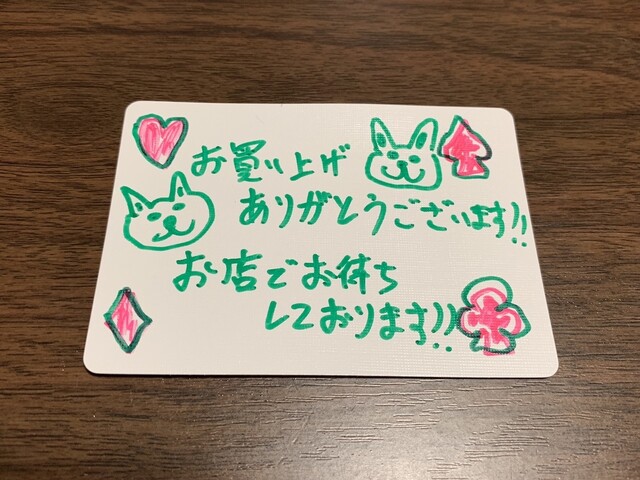 お買い上げ
ありがとうございます!!
お店でお待ち
しております!!